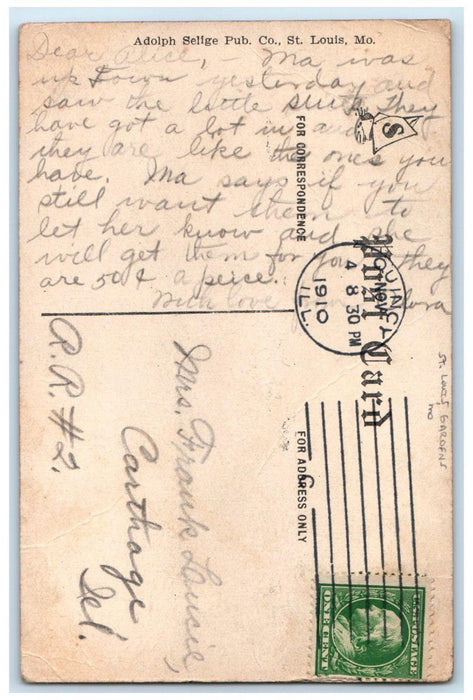 Adolph Selige Pub. Co., St. Louis, Mo.
Dear Alice, - Ma was
up town yesterday and
saw the little suits they
have got a lot in and
they are like the ones you
have. Ma says if you
still want them to
let her know and she
will get them for you they
are 50¢ a peice.
With love
FOR CORRESPONDENCE
S
Post Card
QUINCY
NOV
4
8 30 PM
1910
ILL.
ST. LOUIS GARDENS
MO
FOR ADDRESS ONLY
6
Mrs. Frank
Carthage
Ill.
R.R.#2.
U.S. POSTAGE
ONE CENT